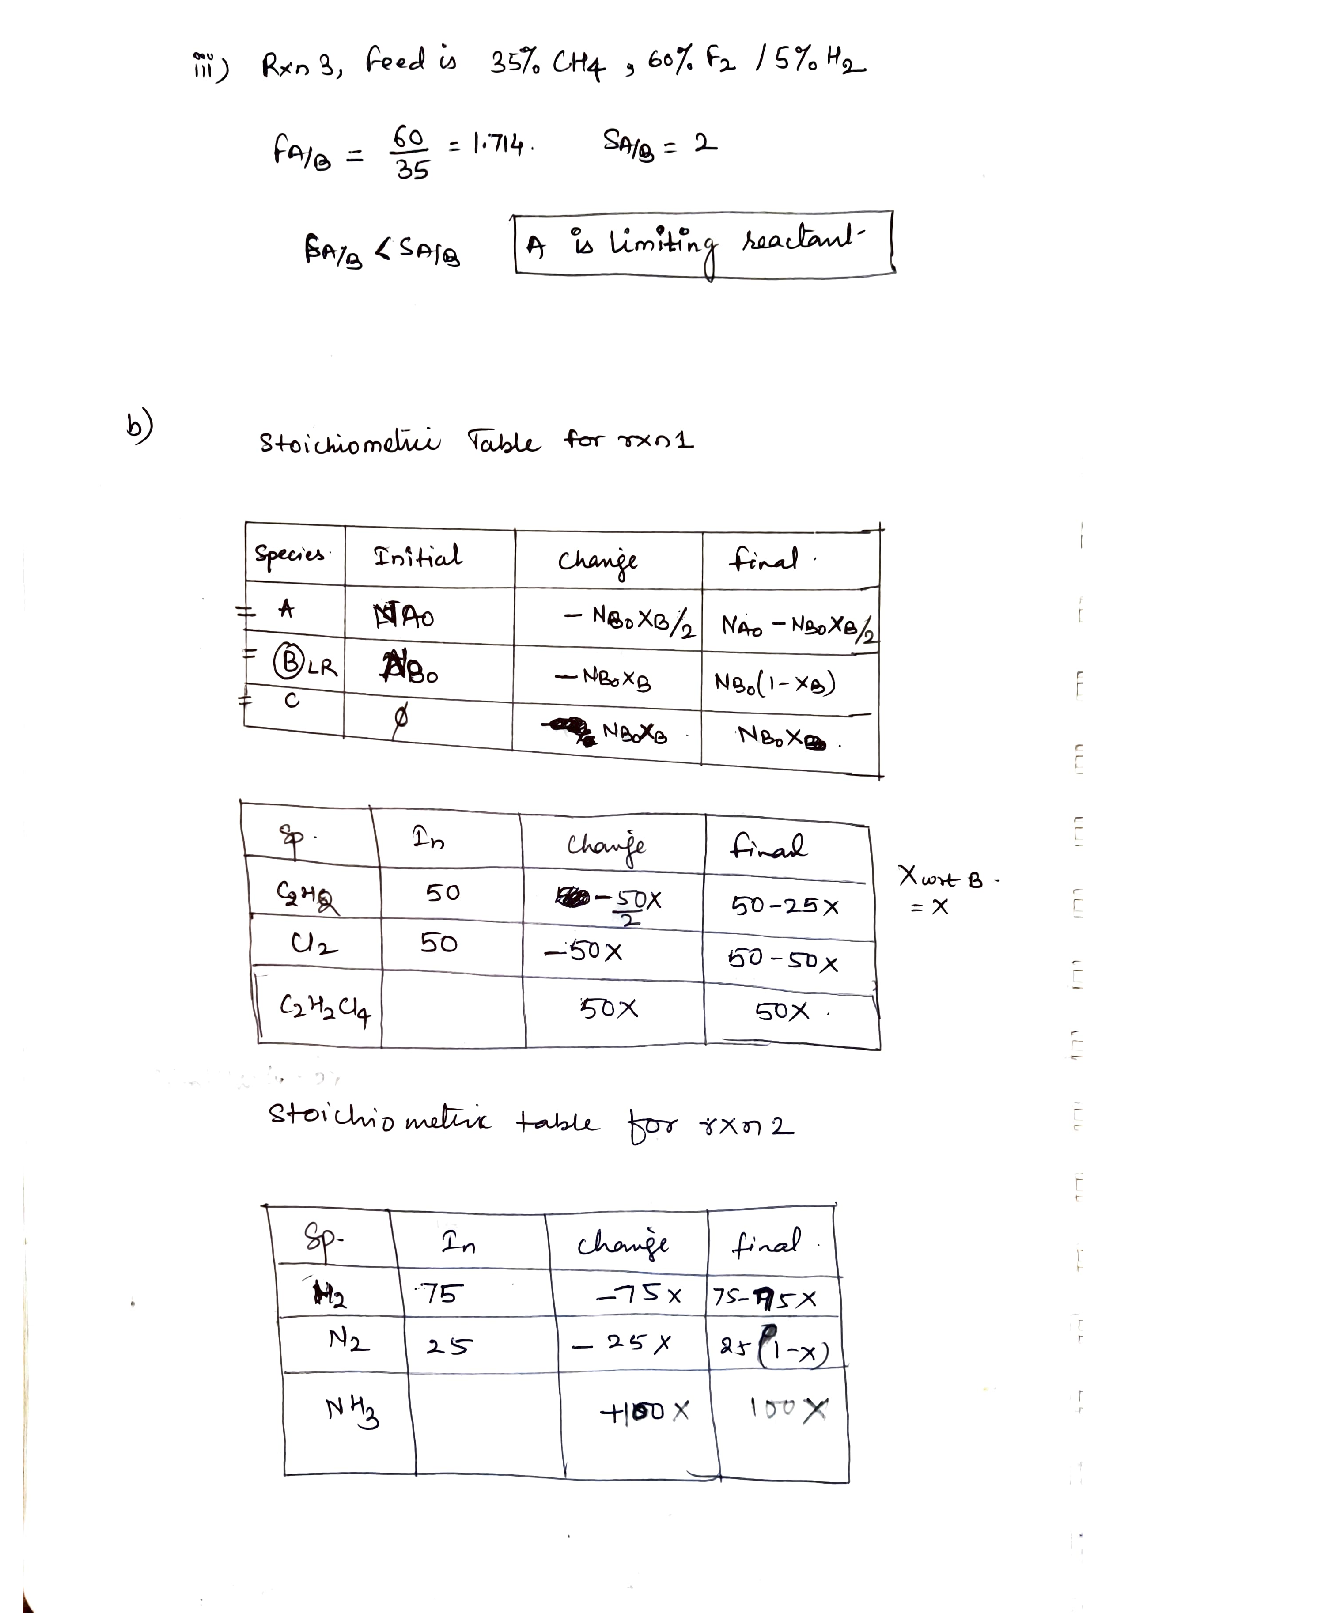 iii) Rxn 3, Feed is 35% CH4, 60% F2 / 5% H2
fA/B = 60/35 = 1.714. SA/B = 2
fA/B < SA/B A is limiting reactant
b)
Stoichiometric Table for rxn1
Species Initial Change final.
A NAO - NBOXB/2 NAO - NBOXB/2
B LR NBO - NBOXB NBO(1-XB)
C ø NBOXB NBOXB.
Sp. In Change final
C2H2 50 -50X/2 50-25X
X wrt B.
= X
Cl2 50 -50X 50-50X
C2H2Cl4 50X 50X.
Stoichiometric table for rxn 2
Sp- In change final.
H2 75 -75X 75-75X
N2 25 - 25X 25(1-X)
NH3 +100X 100X